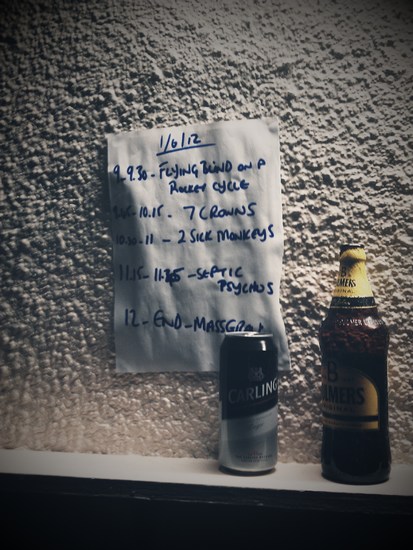 1/6/12
9-9.30 - FLYING BLIND ON A
ROCKET CYCLE
10.15 - 7 CROWNS
10.30-11 - 2 SICK MONKEYS
11.15 - SEPTIC
PSYCHOS
12 - END - MASSGRAV
CARLING
B
LMERS